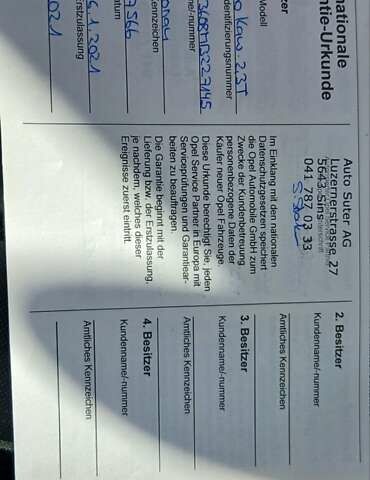 rnationale
ntie-Urkunde
tzer
Modell
dentifizierungsnummer
me/-nummer
Kennzeichen
7566
1.2021
rstzulassung
021
Auto Suter AG
Luzernerstrasse 27
5643 Sins
041 787 03 33
Im Einklang mit den nationalen
Datenschutzgesetzen speichert
die Opel Automobile GmbH zum
Zwecke der Kundenbetreuung
personenbezogene Daten der
Käufer neuer Opel Fahrzeuge
Diese Urkunde berechtigt Sie, jeden
Opel Service Partner in Europa mit
Serviceprüfungen und Garantiear-
beiten zu beauftragen.
Die Garantie beginnt mit der
Lieferung bzw. der Erstzulassung,
je nachdem, welches dieser
Ereignisse zuerst eintritt.
2. Besitzer
Kundenname/-nummer
Amtliches Kennzeichen
3. Besitzer
Kundenname/-nummer
Amtliches Kennzeichen
4. Besitzer
Kundenname/-nummer
Amtliches Kennzeichen